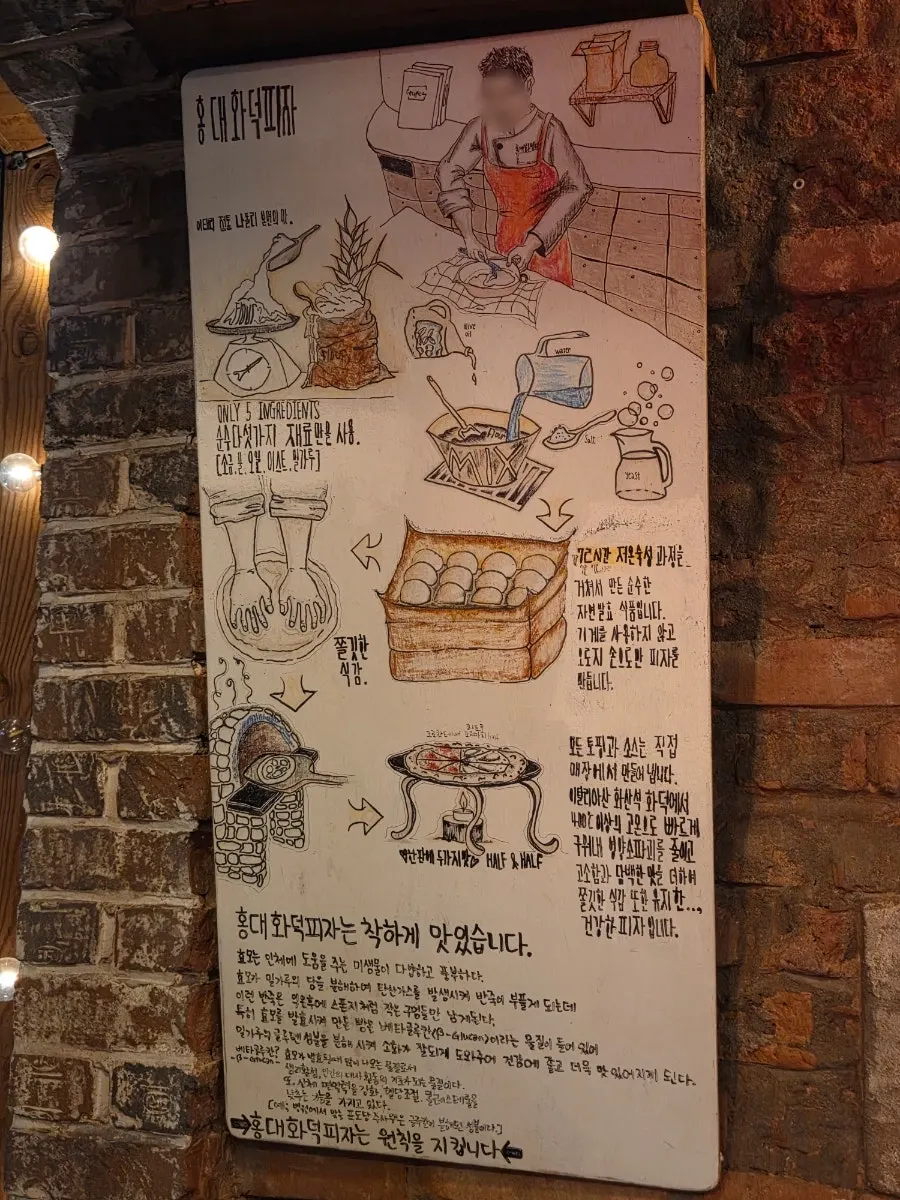 홍대화덕피자
이태리 전통 나폴리 본연의 맛.
FLOUR
FLOUR
Olive
oil
water
ONLY 5 INGREDIENTS
순수 다섯가지 재료만을 사용.
[소금, 물, 오일, 이스트, 밀가루]
Flour
MIX
Salt
yeast
72시간 저온숙성 과정을
거쳐서 만든 순수한
자연발효 식품입니다.
기계를 사용하지 않고
오로지 손으로만 피자를
만듭니다.
쫄깃한
식감.
모든 토핑과 소스는 직접
매장에서 만들어 냅니다.
이탈리아산 화산석 화덕에서
이상의 고온으로 빠르게
구워내 영양소파괴를 줄이고
고소함과 담백한 맛을 더하며
쫄깃한 식감 또한 유지한...,
건강한 피자입니다.
두가지맛 HALF & HALF
홍대 화덕피자는 착하게 맛있습니다.
효모는 인체에 도움을 주는 미생물이 다양하고 풍부하다.
효모가 밀가루의 당을 분해하여 탄산가스를 발생시켜 반죽이 부풀게 되는데
이런 반죽은 구운후에 스폰지처럼 작은 구멍들만 남게된다.
특히 효모를 발효시켜 만든 빵은 베타글루칸(β-Glucan)이라는 물질이 들어 있어
밀가루의 글루텐 성분을 분해 시켜 소화가 잘되게 도와주어 건강에 좋고 더욱 맛 있어지게 된다.
베타글루칸? 효모가 발효될때 많이 나오는 물질로서
-β-Glucan-
또, 신체 면역력을 강화, 혈당조절, 콜레스테롤을
낮추는 기능을 가지고 있다.
홍대화덕피자는 원칙을 지킵니다